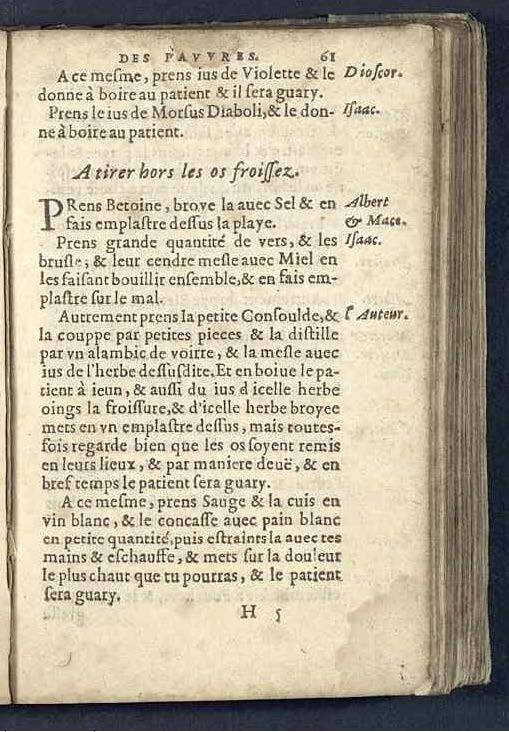 DES PAVVRES. 61
A ce meſme, prens ius de Violette & le Dioſcor.
donne à boire au patient & il ſera guary.
Prens le ius de Morſus Diaboli, & le don- Iſaac.
ne à boire au patient.
A tirer hors les os froiſſez.
PRens Betoine, broye la auec Sel & en Albert
fais emplaſtre deſſus la playe. & Mace.
Prens grande quantité de vers, & les Iſaac.
bruſle; & leur cendre meſle auec Miel en
les faiſant bouillir enſemble, & en fais em-
plaſtre ſur le mal.
Autrement prens la petite Conſoulde, & l'Auteur.
la couppe par petites pieces & la diſtille
par vn alambic de voirre, & la meſle auec
ius de l'herbe deſſuſdite. Et en boiue le pa-
tient à ieun, & auſſi du ius d icelle herbe
oings la froiſſure, & d'icelle herbe broyee
mets en vn emplaſtre deſſus, mais toutes-
fois regarde bien que les os ſoyent remis
en leurs lieux, & par maniere deuë, & en
bref temps le patient ſera guary.
A ce meſme, prens Sauge & la cuis en
vin blanc, & le concaſſe auec pain blanc
en petite quantité, puis eſtraints la auec tes
mains & eſchauffe, & mets ſur la douleur
le plus chaut que tu pourras, & le patient
ſera guary.
H 5